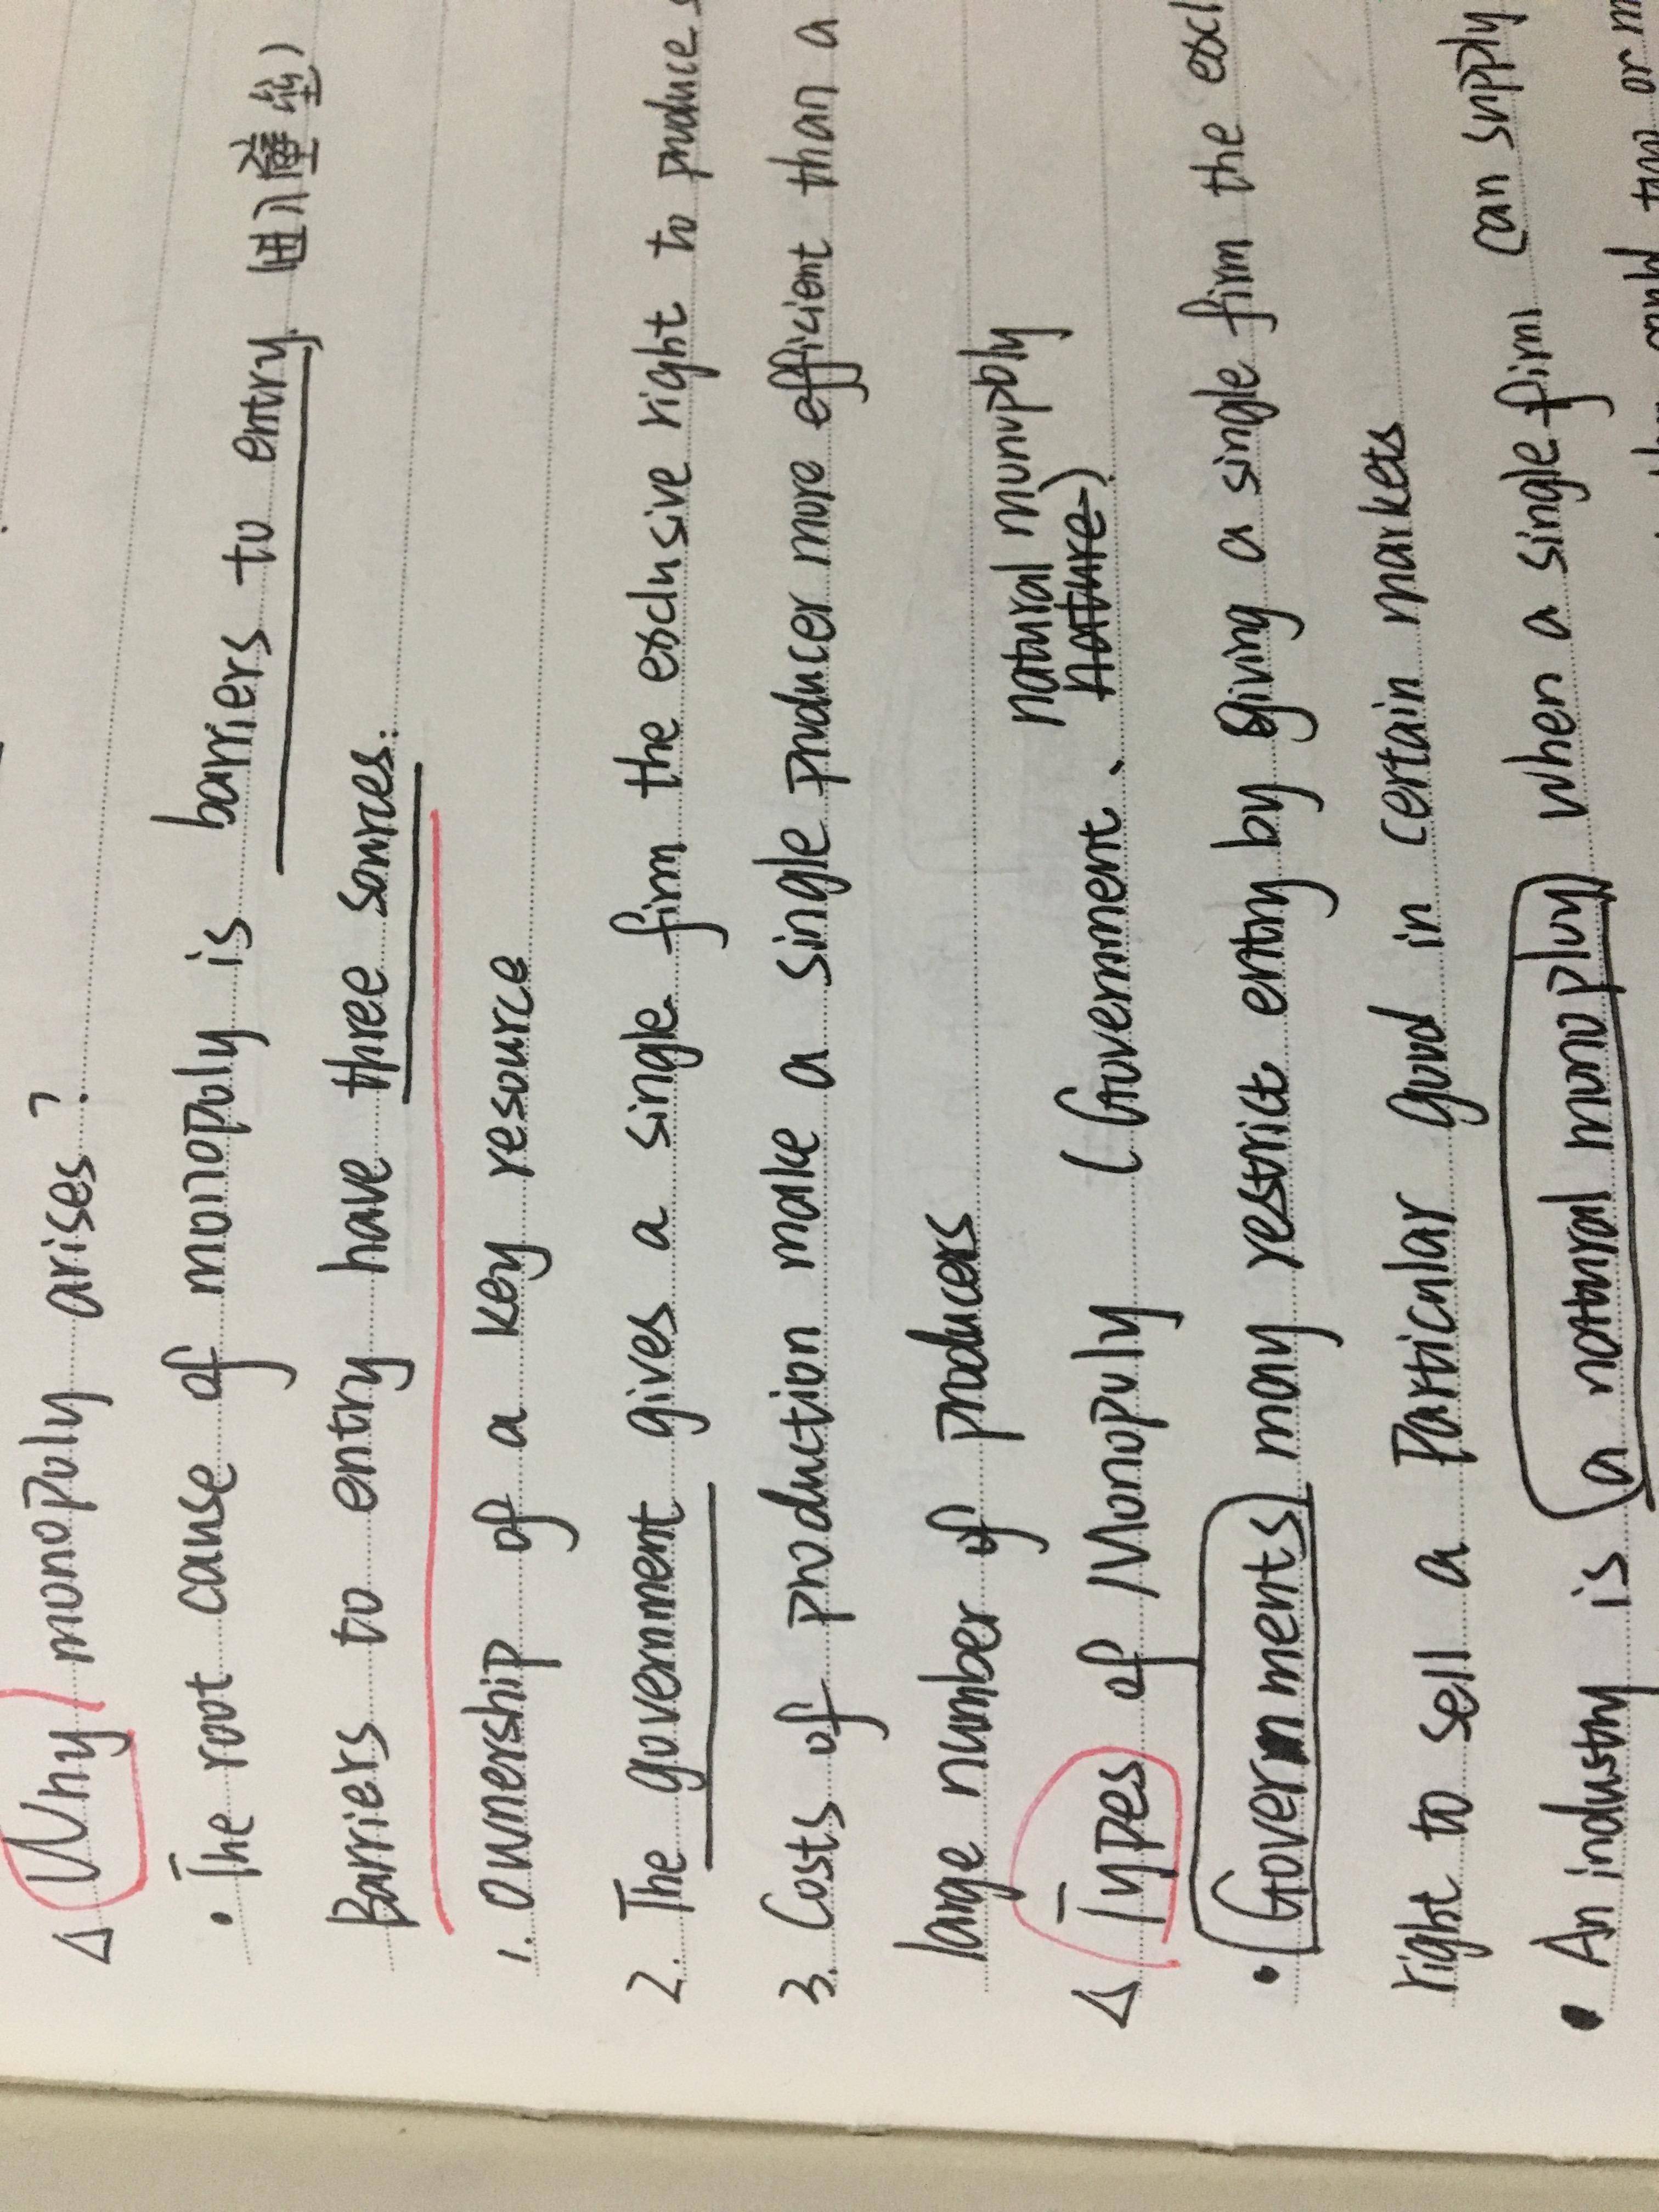 △ Why monopoly arises?
· The root cause of monopoly is barriers to entry
Barriers to entry have three sources:
1. Ownership of a key resource
2. The government gives a single firm the exclusive right to produce
3. Costs of production make a single producer more efficient than a
large number of producers
natural monopoly
△ Types of Monopoly (Government、nature)
· Governments may restrict entry by giving a single firm the excl
right to sell a Particular good in certain markets
· An industry is a natural monoploy when a single firm can supply
two or m